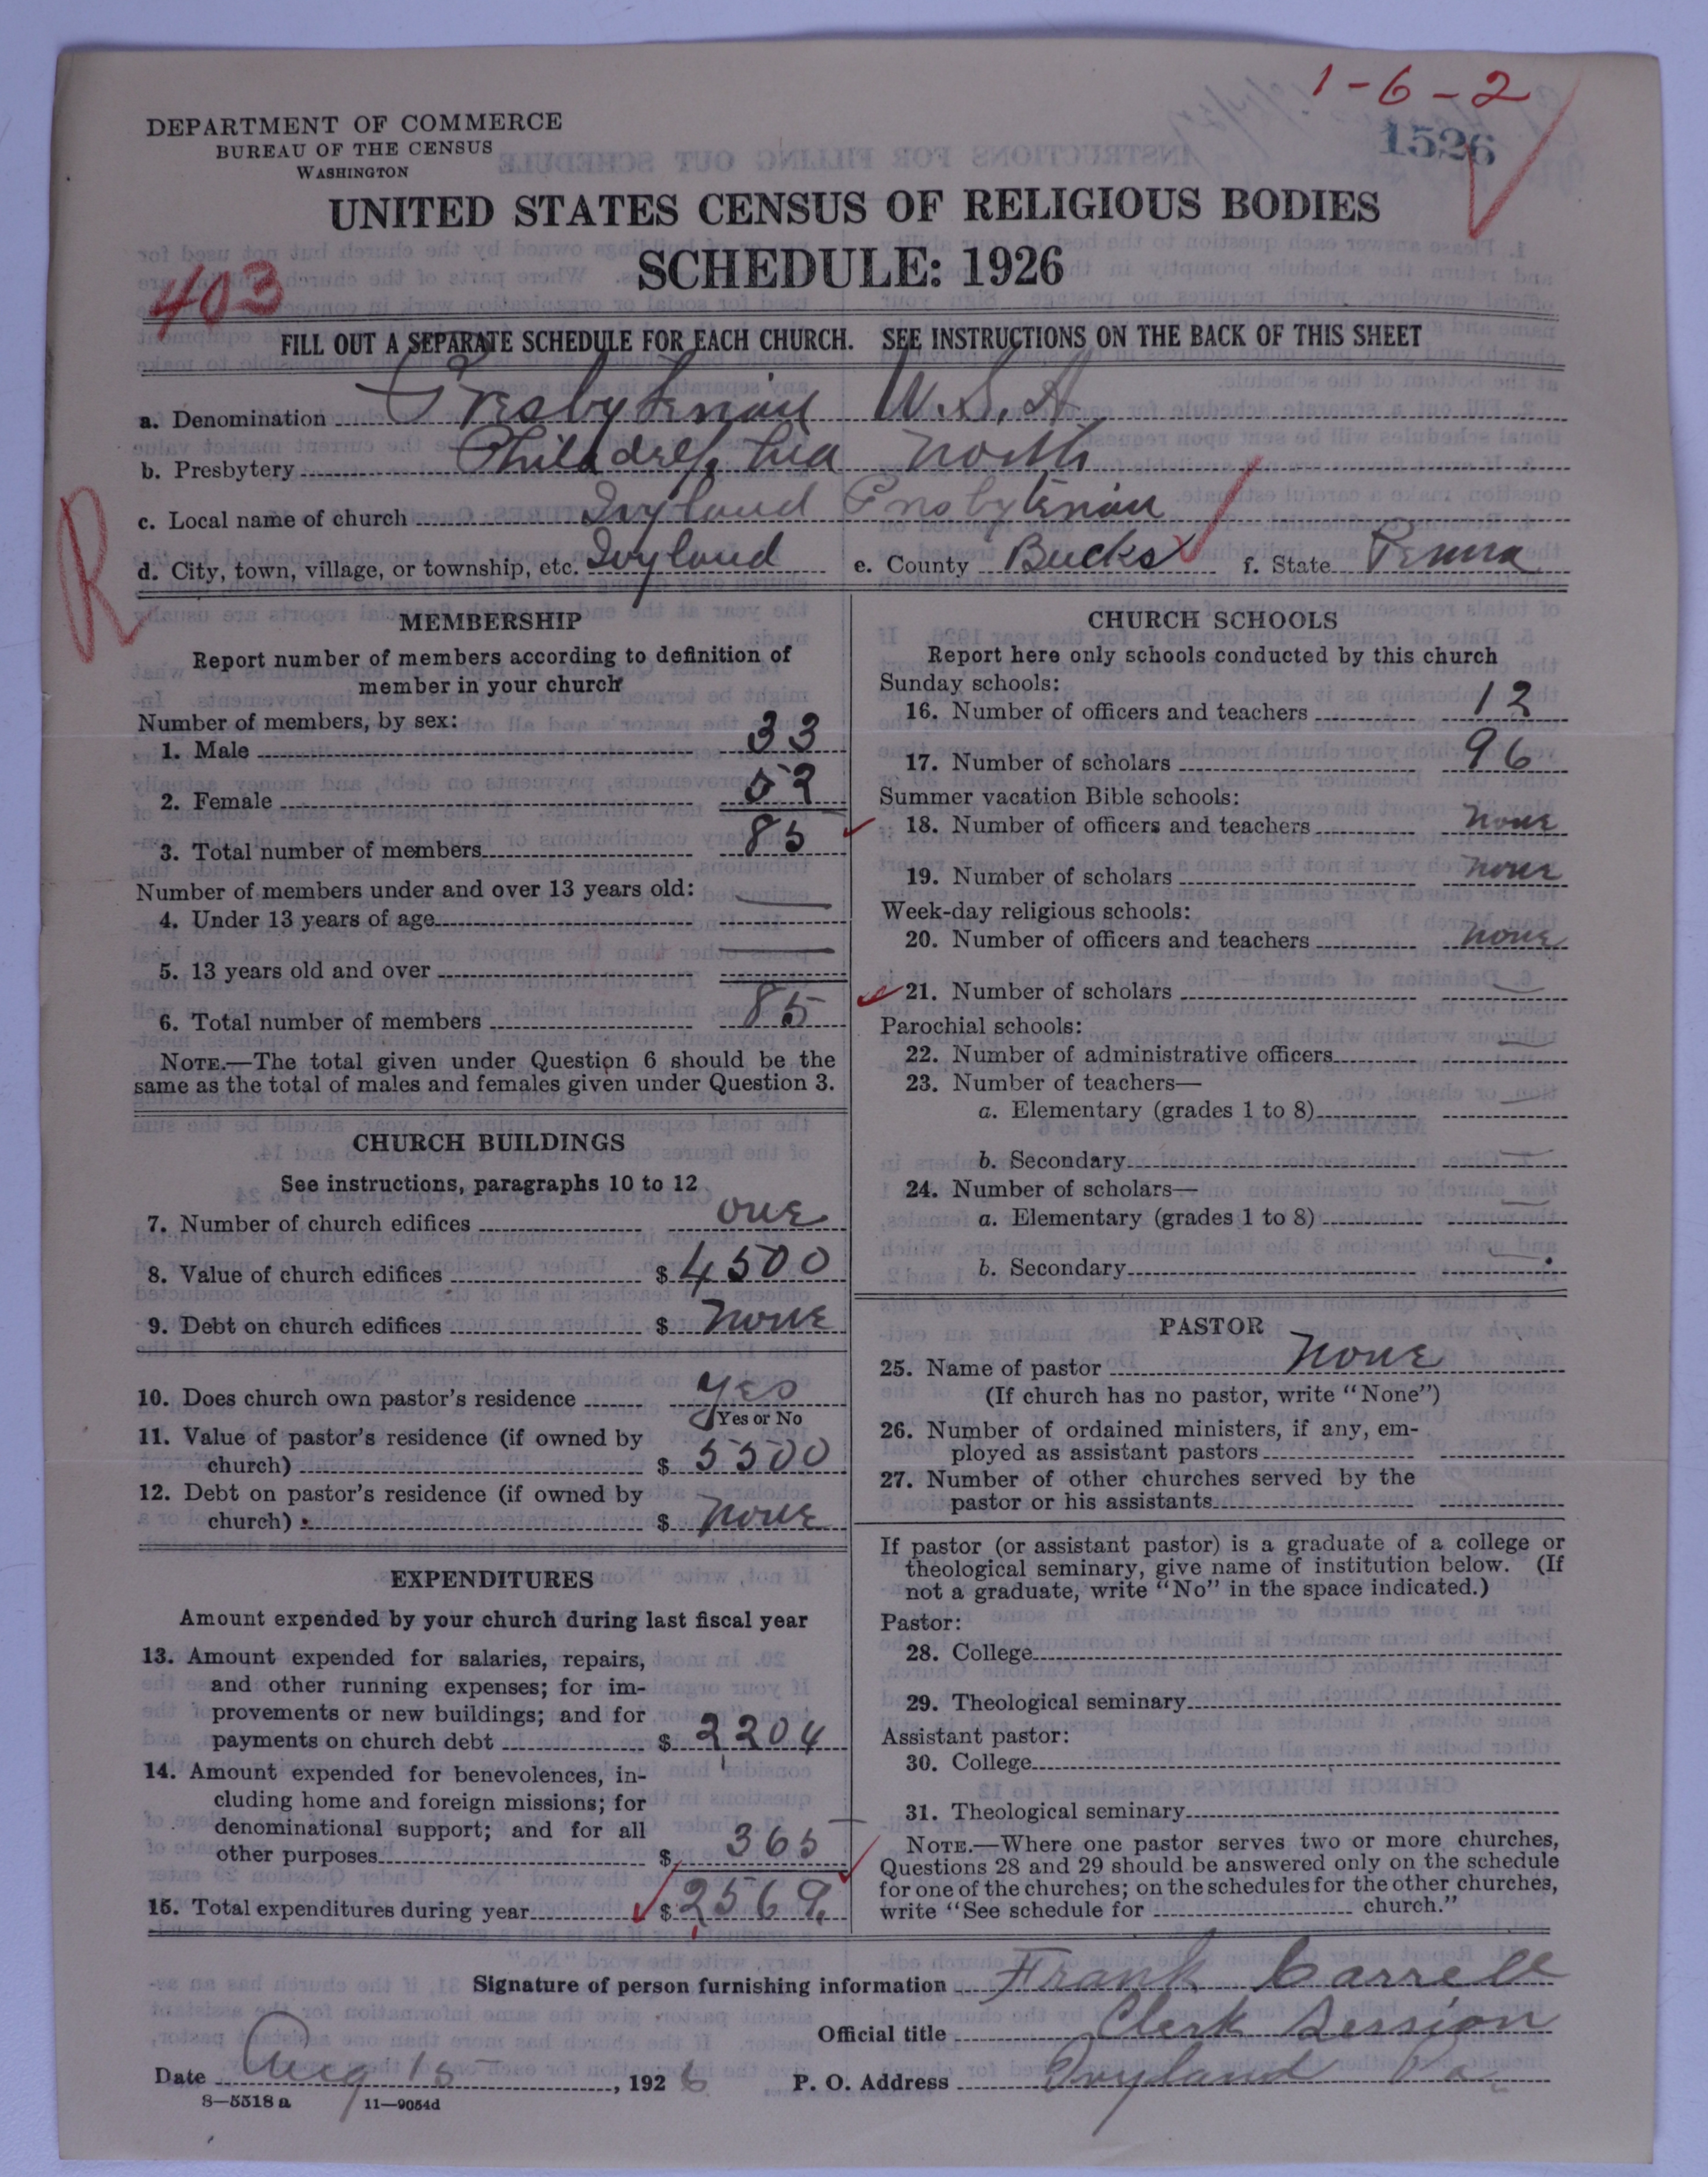 1-6-2
1526
DEPARTMENT OF COMMERCE
BUREAU OF THE CENSUS
WASHINGTON
UNITED STATES CENSUS OF RELIGIOUS BODIES
SCHEDULE: 1926
403
FILL OUT A SEPARATE SCHEDULE FOR EACH CHURCH. SEE INSTRUCTIONS ON THE BACK OF THIS SHEET
a. Denomination Presbyterian U.S.A
b. Presbytery Philadelphia North
c. Local name of church Ivyland Presbyterian
d. City, town, village, or township, etc. Ivyland e. County Bucks f. State Penna
R
MEMBERSHIP
Report number of members according to definition of
member in your church
Number of members, by sex:
1. Male 33
2. Female 52
3. Total number of members 85
Number of members under and over 13 years old:
4. Under 13 years of age
5. 13 years old and over
6. Total number of members 85
NOTE.—The total given under Question 6 should be the
same as the total of males and females given under Question 3.
CHURCH BUILDINGS
See instructions, paragraphs 10 to 12
7. Number of church edifices one
8. Value of church edifices $ 4500
9. Debt on church edifices $ none
10. Does church own pastor's residence yes
Yes or No
11. Value of pastor's residence (if owned by
church) $ 5500
12. Debt on pastor's residence (if owned by
church) $ none
EXPENDITURES
Amount expended by your church during last fiscal year
13. Amount expended for salaries, repairs,
and other running expenses; for im-
provements or new buildings; and for
payments on church debt $ 2204
14. Amount expended for benevolences, in-
cluding home and foreign missions; for
denominational support; and for all
other purposes $ 365
15. Total expenditures during year $ 2569
CHURCH SCHOOLS
Report here only schools conducted by this church
Sunday schools:
16. Number of officers and teachers 12
17. Number of scholars 96
Summer vacation Bible schools:
18. Number of officers and teachers none
19. Number of scholars none
Week-day religious schools:
20. Number of officers and teachers none
21. Number of scholars —
Parochial schools:
22. Number of administrative officers —
23. Number of teachers—
a. Elementary (grades 1 to 8) —
b. Secondary —
24. Number of scholars—
a. Elementary (grades 1 to 8) —
b. Secondary —
PASTOR
25. Name of pastor None
(If church has no pastor, write "None")
26. Number of ordained ministers, if any, em-
ployed as assistant pastors
27. Number of other churches served by the
pastor or his assistants
If pastor (or assistant pastor) is a graduate of a college or
theological seminary, give name of institution below. (If
not a graduate, write "No" in the space indicated.)
Pastor:
28. College
29. Theological seminary
Assistant pastor:
30. College
31. Theological seminary
NOTE.—Where one pastor serves two or more churches,
Questions 28 and 29 should be answered only on the schedule
for one of the churches; on the schedules for the other churches,
write "See schedule for church."
Signature of person furnishing information Frank Carrell
Official title Clerk Session
Date Aug 15, 1926 P. O. Address Ivyland Pa
8—5518 a 11—9054d